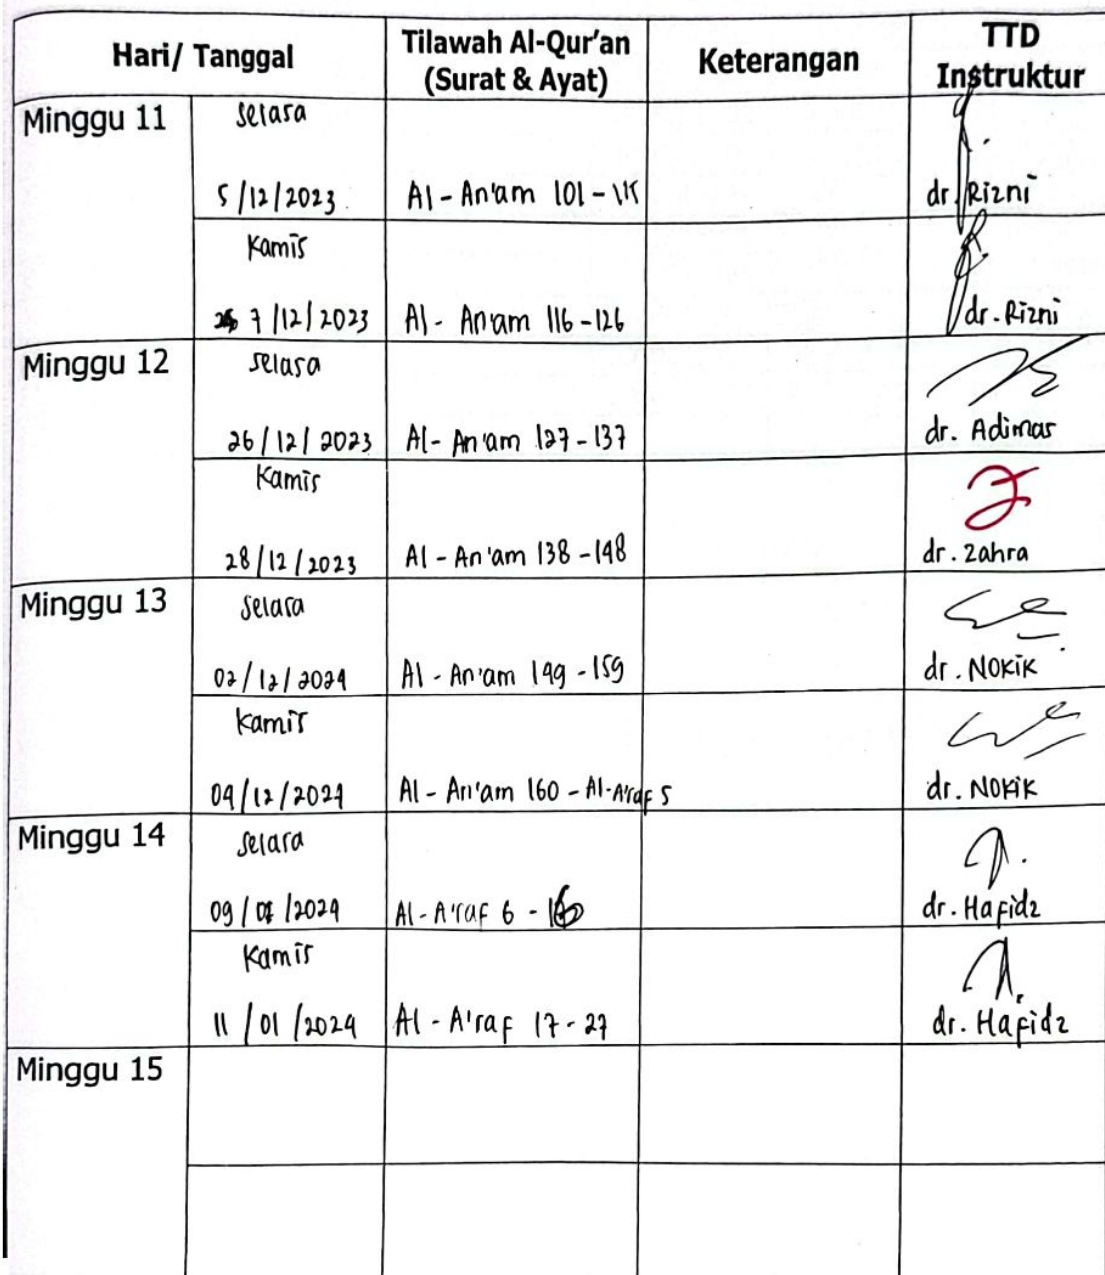 Hari/ Tanggal
Tilawah Al-Qur'an
(Surat & Ayat)
Keterangan
TTD
Instruktur
Minggu 11
Selasa
5/12/2023
Al-An'am 101-115
dr. Rizni
Kamis
7/12/2023
Al-An'am 116-126
dr. Rizni
Minggu 12
Selasa
26/12/2023
Al-An'am 127-137
dr. Adimas
Kamis
28/12/2023
Al-An'am 138-148
dr. Zahra
Minggu 13
Selasa
02/12/2024
Al-An'am 149-159
dr. Nokik
Kamis
04/12/2024
Al-An'am 160-Al-A'raf 5
dr. Nokik
Minggu 14
Selasa
09/01/2024
Al-A'raf 6-16
dr. Hafidz
Kamis
11/01/2024
Al-A'raf 17-27
dr. Hafidz
Minggu 15